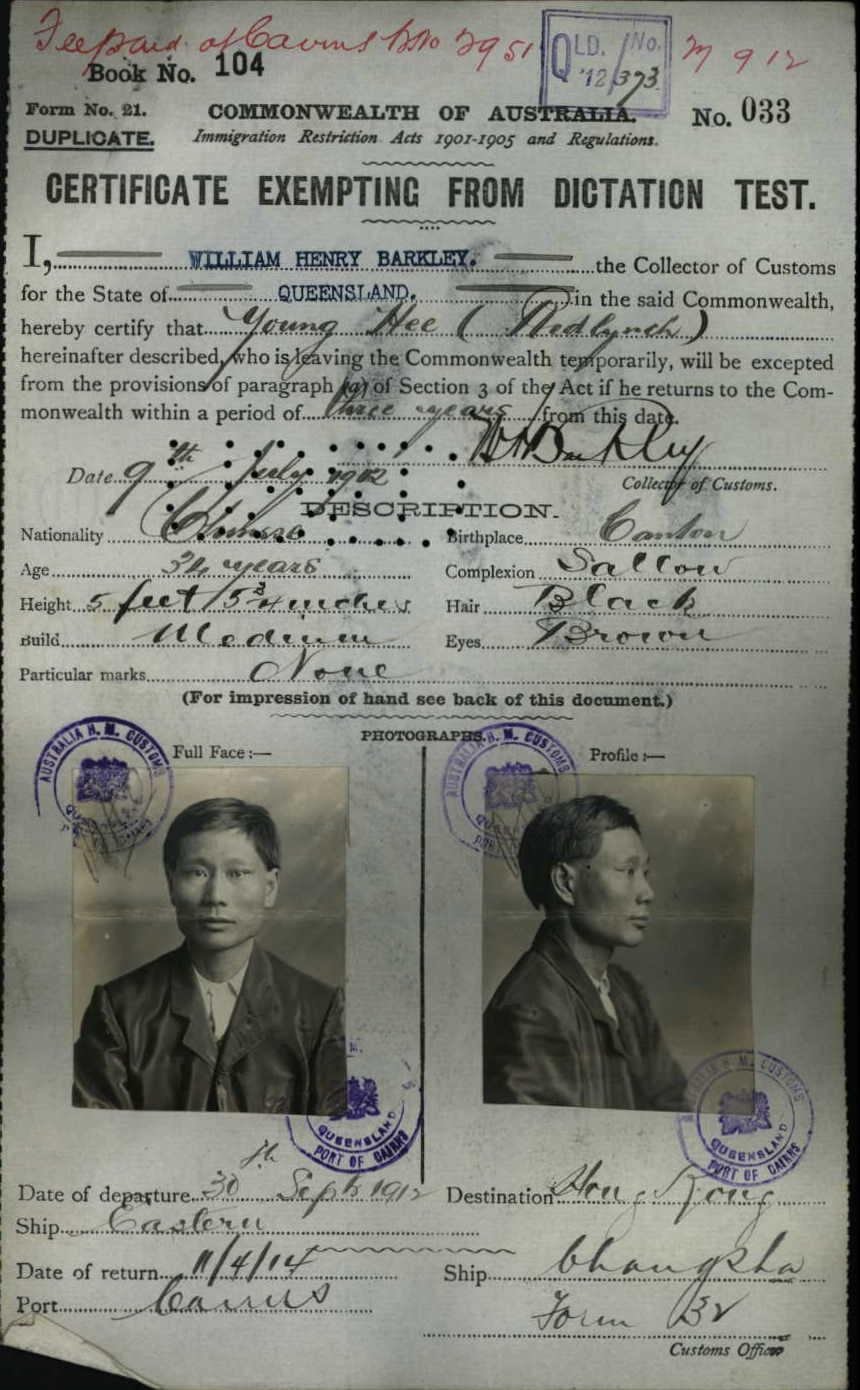 Fee paid at Cairns 9 12
Book No. 104
QLD. No.
'12/373
Form No. 21. COMMONWEALTH OF AUSTRALIA. No. 033
DUPLICATE. Immigration Restriction Acts 1901-1905 and Regulations.
CERTIFICATE EXEMPTING FROM DICTATION TEST.
I, WILLIAM HENRY BARKLEY. the Collector of Customs
for the State of QUEENSLAND. in the said Commonwealth,
hereby certify that Young Hee (Redlynch)
hereinafter described, who is leaving the Commonwealth temporarily, will be excepted
from the provisions of paragraph (a) of Section 3 of the Act if he returns to the Com-
monwealth within a period of three years from this date.
WHBarkley
Date 9th July 1912 Collector of Customs.
DESCRIPTION.
Nationality Chinese Birthplace Canton
Age 34 years Complexion Sallow
Height 5 feet 5 3/4 inches Hair Black
Build Medium Eyes Brown
Particular marks None
(For impression of hand see back of this document.)
PHOTOGRAPHS.
Full Face:— Profile:—
AUSTRALIA H. M. CUSTOMS
AUSTRALIA H. M. CUSTOMS
QUEENSLAND
PORT OF CAIRNS
AUSTRALIA H. M. CUSTOMS
QUEENSLAND
PORT OF CAIRNS
Date of departure 30th Sept 1912 Destination Hong Kong
Ship Eastern
Date of return 11/4/14 Ship Changsha
Port Cairns Form 32
Customs Officer